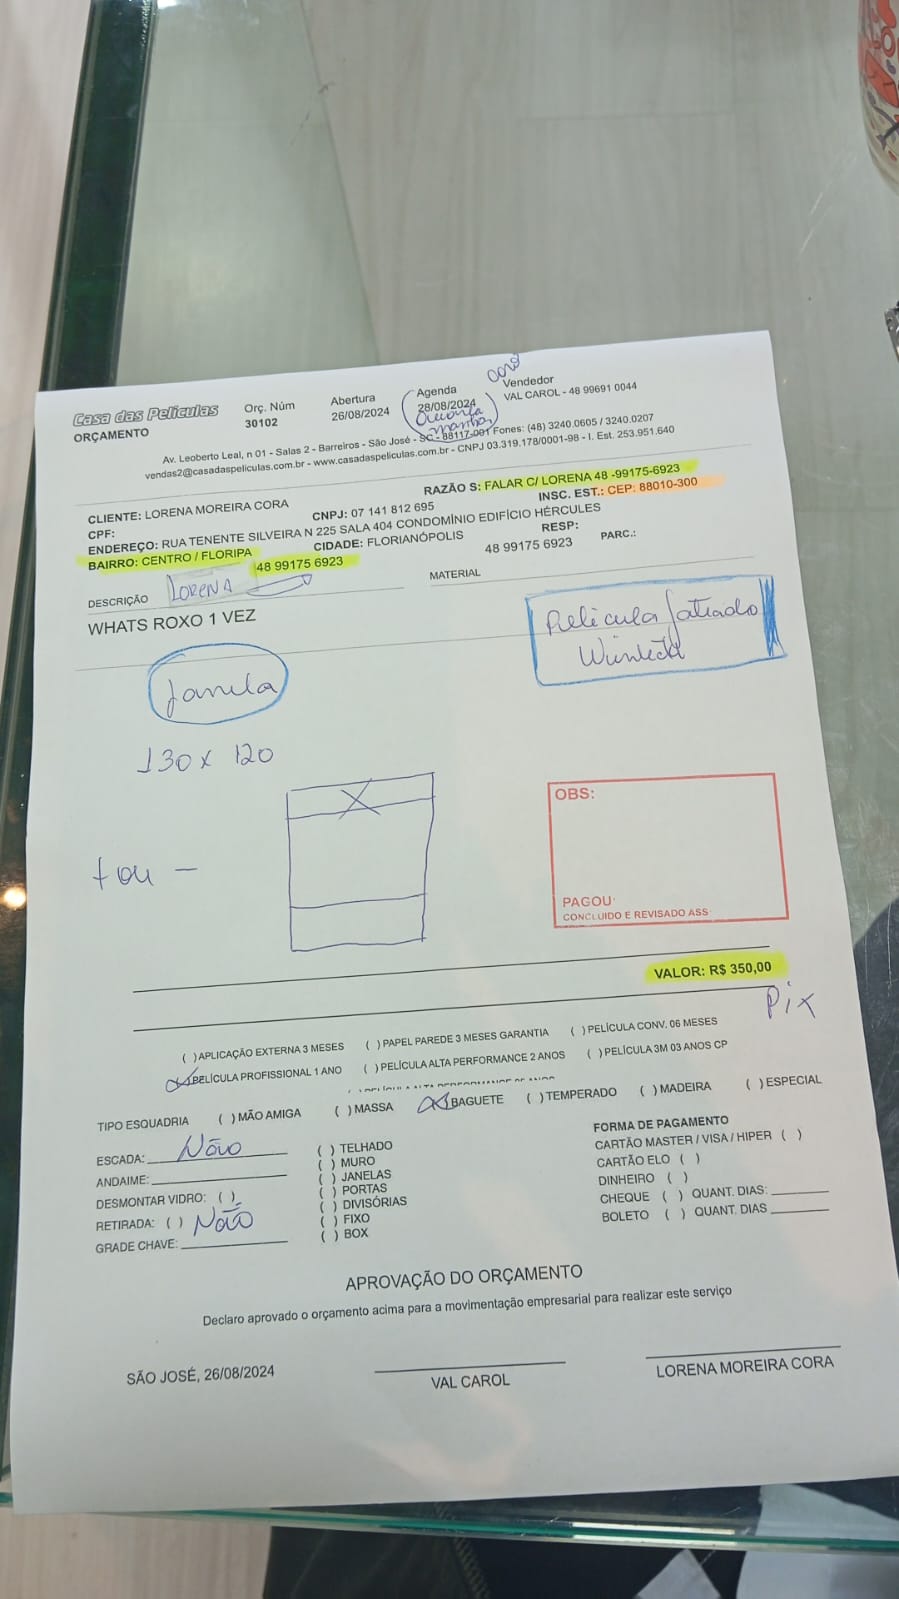 Casa das Películas
ORÇAMENTO
Orç. Núm
30102
Abertura
26/08/2024
Agenda
28/08/2024
manhã
Vendedor
VAL CAROL - 48 99691 0044
Av. Leoberto Leal, n 01 - Salas 2 - Barreiros - São José - SC - 88117-001 Fones: (48) 3240.0605 / 3240.0207
vendas2@casadaspeliculas.com.br - www.casadaspeliculas.com.br - CNPJ 03.319.178/0001-98 - I. Est. 253.951.640
RAZÃO S: FALAR C/ LORENA 48 -99175-6923
CLIENTE: LORENA MOREIRA CORA
INSC. EST.: CEP: 88010-300
CPF:
CNPJ: 07 141 812 695
ENDEREÇO: RUA TENENTE SILVEIRA N 225 SALA 404 CONDOMÍNIO EDIFÍCIO HÉRCULES
BAIRRO: CENTRO / FLORIPA
CIDADE: FLORIANÓPOLIS
RESP:
48 99175 6923
48 99175 6923
PARC.:
DESCRIÇÃO
LORENA
MATERIAL
WHATS ROXO 1 VEZ
Película Jateado
Janela
130 x 120
OBS:
PAGOU:
CONCLUIDO E REVISADO ASS:
VALOR: R$ 350,00
Pix
( )APLICAÇÃO EXTERNA 3 MESES ( )PAPEL PAREDE 3 MESES GARANTIA ( )PELÍCULA CONV. 06 MESES
(X)PELÍCULA PROFISSIONAL 1 ANO ( )PELÍCULA ALTA PERFORMANCE 2 ANOS ( )PELÍCULA 3M 03 ANOS CP
TIPO ESQUADRIA ( )MÃO AMIGA ( )MASSA (X)BAGUETE ( )TEMPERADO ( )MADEIRA ( )ESPECIAL
ESCADA: Não
ANDAIME:
DESMONTAR VIDRO: ( )
RETIRADA: ( ) Não
GRADE CHAVE:
( ) TELHADO
( ) MURO
( ) JANELAS
( ) PORTAS
( ) DIVISÓRIAS
( ) FIXO
( ) BOX
FORMA DE PAGAMENTO
CARTÃO MASTER / VISA / HIPER ( )
CARTÃO ELO ( )
DINHEIRO ( )
CHEQUE ( ) QUANT. DIAS:
BOLETO ( ) QUANT. DIAS
APROVAÇÃO DO ORÇAMENTO
Declaro aprovado o orçamento acima para a movimentação empresarial para realizar este serviço
SÃO JOSÉ, 26/08/2024
VAL CAROL
LORENA MOREIRA CORA